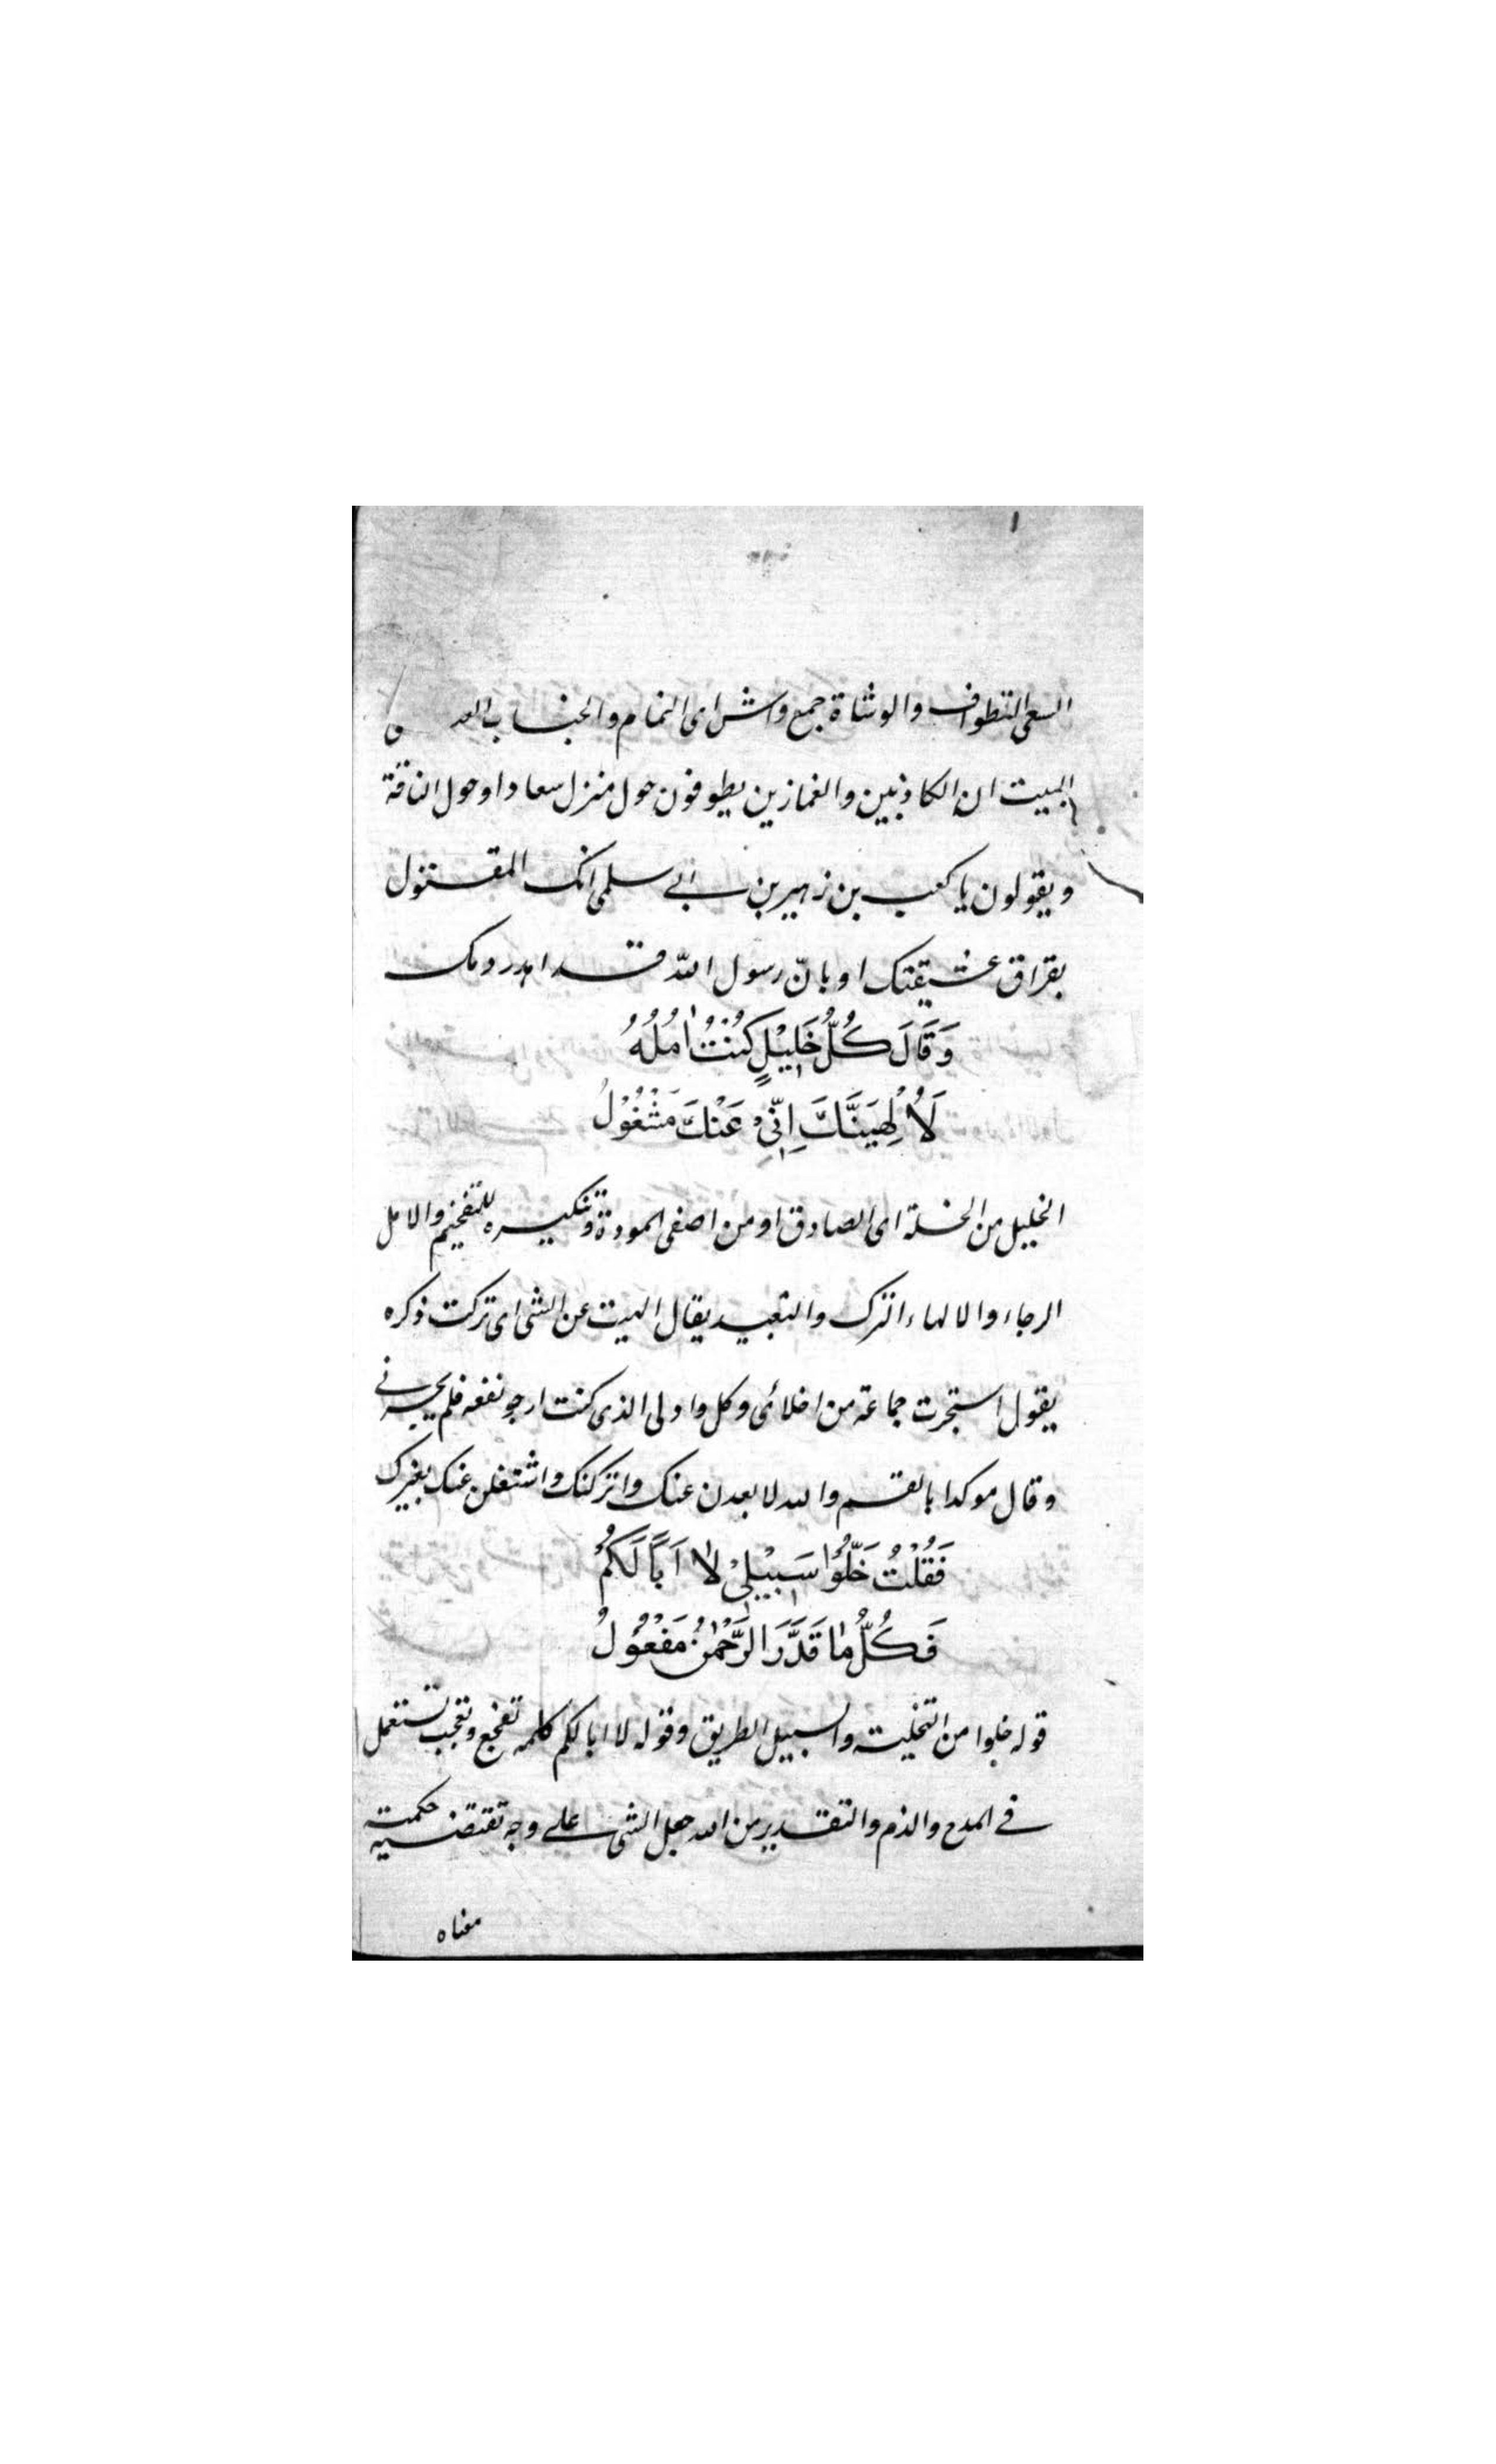 السعی التطواف والوشاة جمع واش ای النمام والجناب
البیت ان الکاذبین والغمازین یطوفون حول منزل سعاد او حول الناقة
ویقولون یا کعب بن زهیر بن ابی سلمی انک المقتول
بقراق عشیقتک او بانّ رسول اللّه قد اهدر دمک
وَقَالَ كُلُّ خَلِيْلٍ كُنْتُ اٰمُلُهُ
لَاُلْهِيَنَّكَ اِنِّيْ عَنْكَ مَشْغُوْلُ
الخلیل من الخلة ای الصادق او من اصفی المودة وتنکیره للتفخیم والامل
الرجاء والالهاء الترک والتبعید یقال الهیت عن الشی ای ترکت ذکره
یقول استجرت جماعة من اخلائی وکل وا ولی الذی کنت ارجو نفعه فلم یجرنی
وقال موکدا بالقسم والله لابعدن عنک واترکنک واشتغلن عنک بغیرک
فَقُلْتُ خَلُّوْا سَبِيْلِيْ لَا اَبًا لَكُمُ
فَكُلُّ مَا قَدَّرَ الرَّحْمٰنُ مَفْعُوْلُ
قوله خلوا من التخلیت والسبیل الطریق وقوله لا ابا لکم کلمه تفجع وتعجب تستعمل
فی المدح والذم والتقدیر من الله جعل الشی علی وجه تقتضیه حکمته
معناه